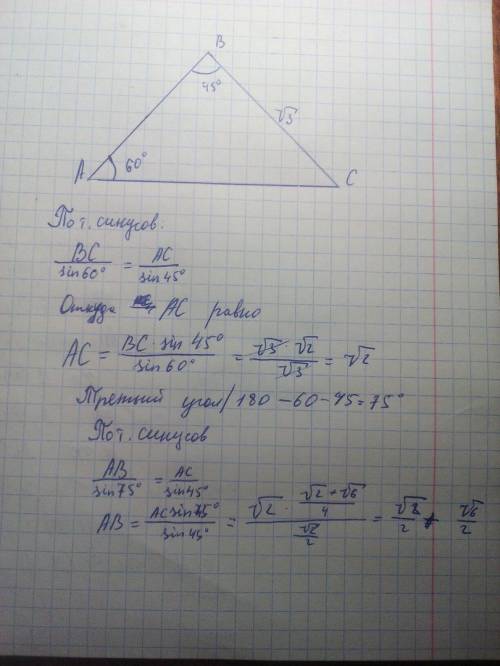 B
45°
√3
A 60° C
По т. синусов.
BC/sin60° = AC/sin45°
Откуда AC равно
AC = BC · sin 45°/sin60° = √3 · √2/√3 = √2
Третий угол/ 180 - 60 - 45 = 75°
По т. синусов
AB/sin75° = AC/sin45°
AB = ACsin75°/sin45° = √2 · (√2 + √6)/4/(√2/2) = √2/2 + √6/2